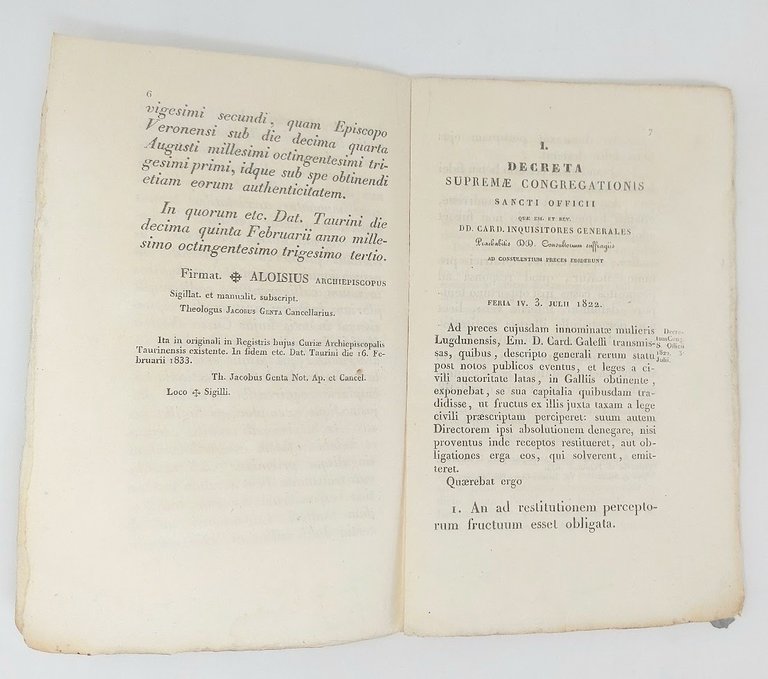 6
vigesimi secundi, quam Episcopo
Veronensi sub die decima quarta
Augusti millesimi octingentesimi tri-
gesimi primi, idque sub spe obtinendi
etiam eorum authenticitatem.
In quorum etc. Dat. Taurini die
decima quinta Februarii anno mille-
simo octingentesimo trigesimo tertio.
Firmat. ✠ ALOISIUS ARCHIEPISCOPUS
Sigillat. et manualit. subscript.
Theologus JACOBUS GENTA Cancellarius.
Ita in originali in Registris hujus Curiæ Archiepiscopalis
Taurinensis existente. In fidem etc. Dat. Taurini die 16. Fe-
bruarii 1833.
Th. Jacobus Genta Not. Ap. et Cancel.
Loco ✠ Sigilli.
7
I.
DECRETA
SUPREMÆ CONGREGATIONIS
SANCTI OFFICII
QUÆ EM. ET REV.
DD. CARD. INQUISITORES GENERALES
Præhabitis DD. Consultorum suffragiis
AD CONSULENTIUM PRECES EDIDERUNT
FERIA IV. 3. JULII 1822.
Ad preces cujusdam innominatæ mulieris
Lugdunensis, Em. D. Card. Galeffi transmis-
sas, quibus, descripto generali rerum statu
post notos publicos eventus, et leges a ci-
vili auctoritate latas, in Galliis obtinente,
exponebat, se sua capitalia quibusdam tra-
didisse, ut fructus ex illis juxta taxam a lege
civili præscriptam perciperet: suum autem
Directorem ipsi absolutionem denegare, nisi
proventus inde receptos restitueret, aut ob-
ligationes erga eos, qui solverent, emit-
teret.
Decre-
tum Cong.
S. Officii
1822. 3
Julii.
Quærebat ergo
1. An ad restitutionem percepto-
rum fructuum esset obligata.